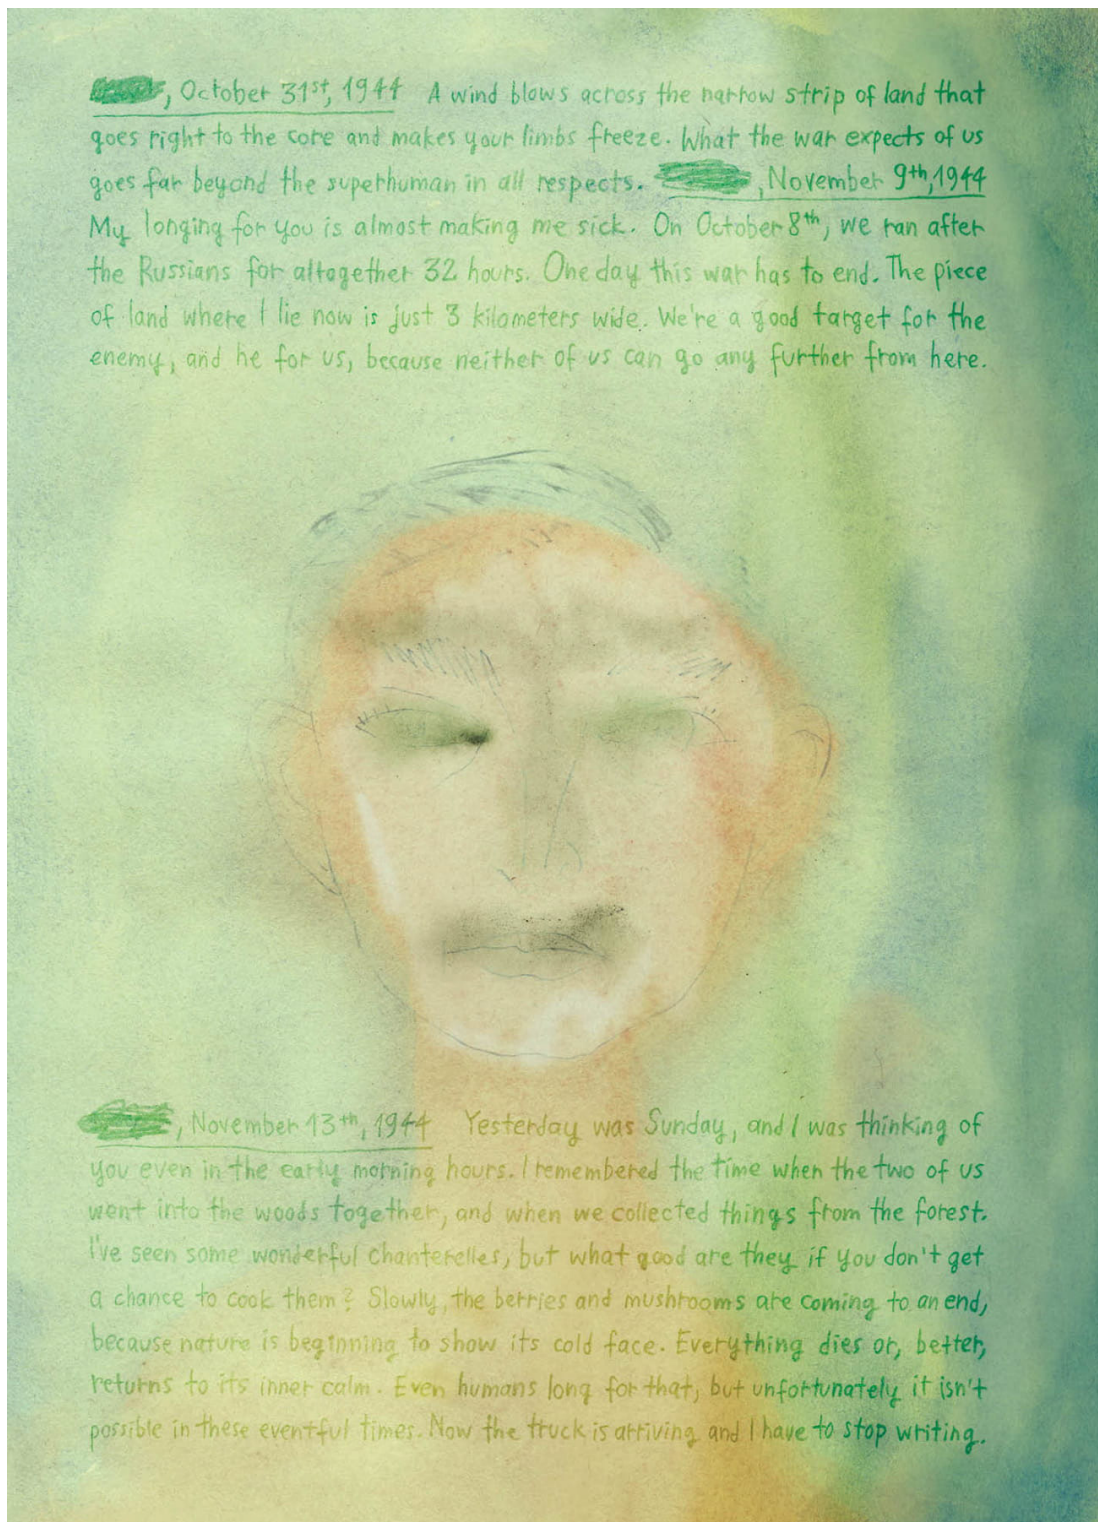 , October 31st, 1944 A wind blows across the narrow strip of land that
goes right to the core and makes your limbs freeze. What the war expects of us
goes far beyond the superhuman in all respects. , November 9th, 1944
My longing for you is almost making me sick. On October 8th, we ran after
the Russians for altogether 32 hours. One day this war has to end. The piece
of land where I lie now is just 3 kilometers wide. We're a good target for the
enemy, and he for us, because neither of us can go any further from here.
, November 13th, 1944 Yesterday was Sunday, and I was thinking of
you even in the early morning hours. I remembered the time when the two of us
went into the woods together, and when we collected things from the forest.
I've seen some wonderful chanterelles, but what good are they if you don't get
a chance to cook them? Slowly, the berries and mushrooms are coming to an end,
because nature is beginning to show its cold face. Everything dies or, better,
returns to its inner calm. Even humans long for that, but unfortunately it isn't
possible in these eventful times. Now the truck is arriving and I have to stop writing.